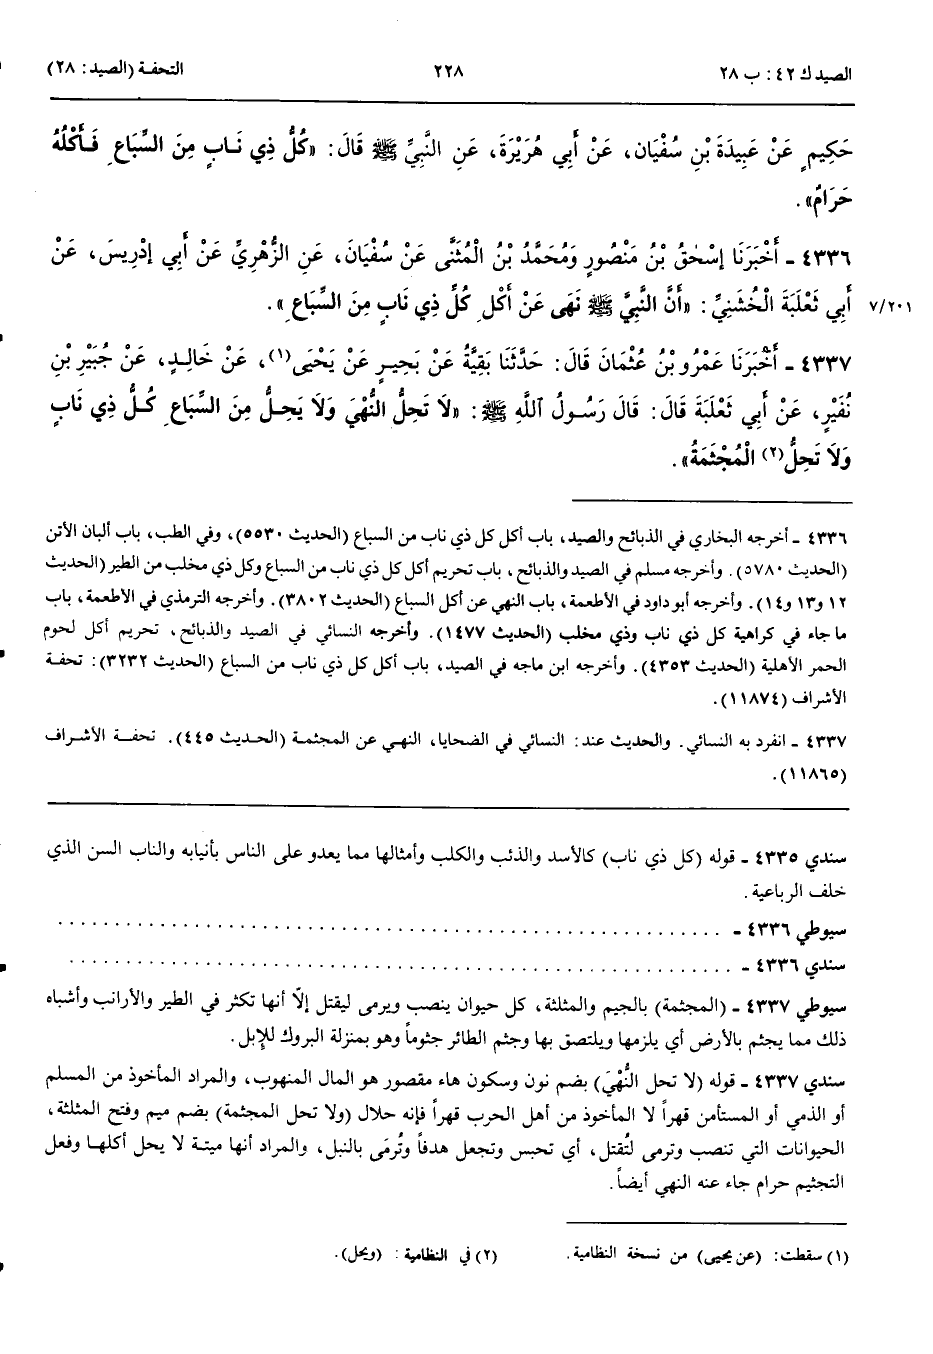 الصيد ك ٤٢: ب ٢٨ ٢٢٨ التحفة (الصيد: ٢٨)
حَكِيمٍ عَنْ عَبِيدَةَ بْنِ سُفْيَان، عَنْ أَبِي هُرَيْرَةَ، عَنِ النَّبِيِّ ﷺ قَالَ: «كُلُّ ذِي نَـابٍ مِنَ السِّبَاعِ فَـأَكْلُهُ
حَرَامٌ».
٤٣٣٦ ـ أَخْبَرَنَا إِسْحٰقُ بْنُ مَنْصُورٍ وَمُحَمَّدُ بْنُ الْمُثَنَّى عَنْ سُفْيَانَ، عَنِ الزُّهْرِيِّ عَنْ أَبِي إِدْرِيسَ، عَنْ
أَبِي ثَعْلَبَةَ الْخُشَنِيِّ: «أَنَّ النَّبِيَّ ﷺ نَهَى عَنْ أَكْلِ كُلِّ ذِي نَابٍ مِنَ السِّبَاعِ». ٧/٢٠١
٤٣٣٧ ـ أَخْبَرَنَا عَمْرُو بْنُ عُثْمَانَ قَالَ: حَدَّثَنَا بَقِيَّةُ عَنْ بَحِيـرٍ عَنْ يَحْيَى(١)، عَنْ خَالِـدٍ، عَنْ جُبَيْرِ بْنِ
نُفَيْرٍ، عَنْ أَبِي ثَعْلَبَةَ قَالَ: قَالَ رَسُولُ ٱللَّهِ ﷺ: «لَا تَحِلُّ النُّهْيَ وَلَا يَحِـلُّ مِنَ السِّبَاعِ كُـلُّ ذِي نَابٍ
وَلَا تَحِلُّ(٢) الْمُجْثَمَةُ».
٤٣٣٦ ـ أخرجه البخاري في الذبائح والصيد، باب أكل كل ذي ناب من السباع (الحديث ٥٥٣٠)، وفي الطب، باب ألبان الأتن
(الحديث ٥٧٨٠). وأخرجه مسلم في الصيد والذبائح، باب تحريم أكل كل ذي ناب من السباع وكل ذي مخلب من الطير (الحديث
١٢ و١٣ و١٤). وأخرجه أبو داود في الأطعمة، باب النهي عن أكل السباع (الحديث ٣٨٠٢). وأخرجه الترمذي في الأطعمة، باب
ما جاء في كراهية كل ذي ناب وذي مخلب (الحديث ١٤٧٧). وأخرجه النسائي في الصيد والذبائح، تحريم أكل لحوم
الحمر الأهلية (الحديث ٤٣٥٣). وأخرجه ابن ماجه في الصيد، باب أكل كل ذي ناب من السباع (الحديث ٣٢٣٢): تحفة
الأشراف (١١٨٧٤).
٤٣٣٧ ـ انفرد به النسائي. والحديث عند: النسائي في الضحايا، النهـي عن المجثمة (الحـديث ٤٤٥). تحفـة الأشـراف
(١١٨٦٥).
سندي ٤٣٣٥ ـ قوله (كل ذي ناب) كالأسد والذئب والكلب وأمثالها مما يعدو على الناس بأنيابه والناب السن الذي
خلف الرباعية.
سيوطي ٤٣٣٦ ـ . . . . . . . . . . . . . . . . . . . . . . . . . . . . . .
سندي ٤٣٣٦ ـ . . . . . . . . . . . . . . . . . . . . . . . . . . . . . .
سيوطي ٤٣٣٧ ـ (المجثمة) بالجيم والمثلثة، كل حيوان ينصب ويرمى ليقتل إلّا أنها تكثر في الطير والأرانب وأشباه
ذلك مما يجثم بالأرض أي يلزمها ويلتصق بها وجثم الطائر جثوماً وهو بمنزلة البروك للإبل.
سندي ٤٣٣٧ ـ قوله (لا تحل النُّهْيَ) بضم نون وسكون هاء مقصور هو المال المنهوب، والمراد المأخوذ من المسلم
أو الذمي أو المستأمن قهراً لا المأخوذ من أهل الحرب قهراً فإنه حلال (ولا تحل المجثمة) بضم ميم وفتح المثلثة،
الحيوانات التي تنصب وترمى لتُقتل، أي تحبس وتجعل هدفاً وتُرمَى بالنبل، والمراد أنها ميتـة لا يحل أكلهـا وفعل
التجثيم حرام جاء عنه النهي أيضاً.
(١) سقطت: (عن يحيى) من نسخة النظامية. (٢) في النظامية: (ويحل).